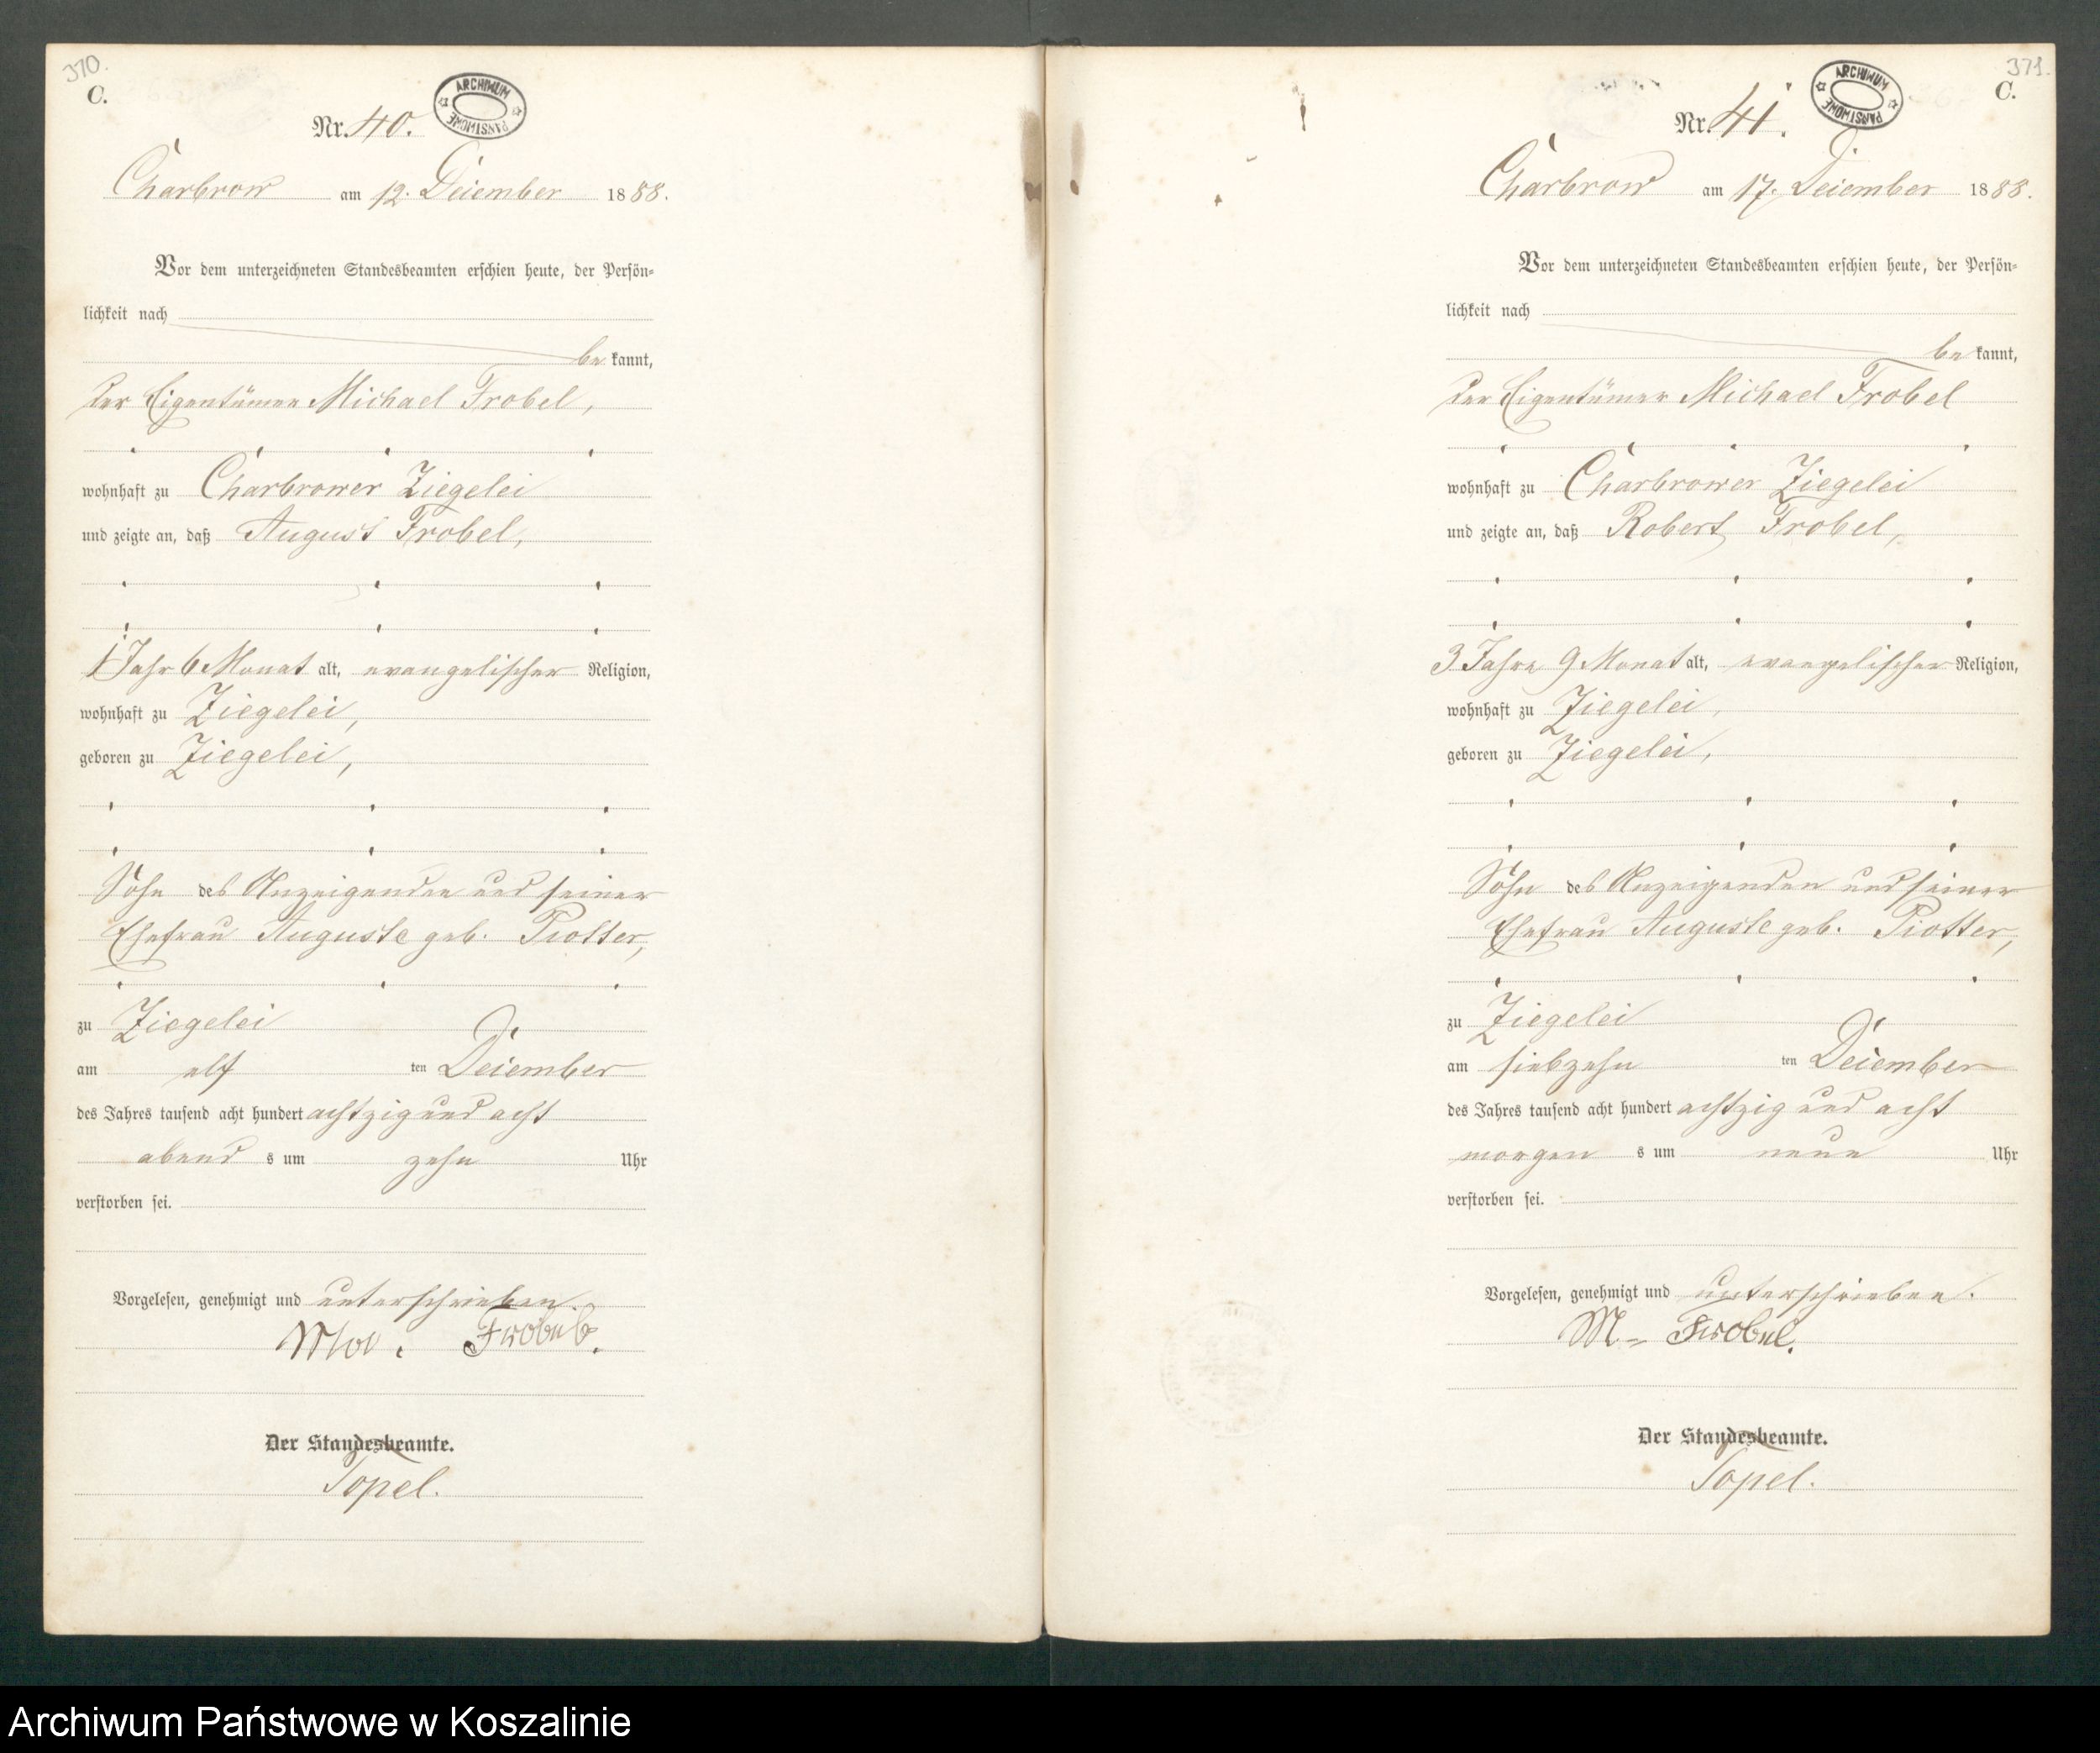 370.
C.
ARCHIWUM PAŃSTWOWE
Nr. 40.
Charbrow am 12. Dezember 1888.
Vor dem unterzeichneten Standesbeamten erschien heute, der Persön=
lichkeit nach
be kannt,
der Eigentümer Michael Frobel,
wohnhaft zu Charbrower Ziegelei
und zeigte an, daß August Frobel,
1 Jahr 6 Monat alt, evangelischer Religion,
wohnhaft zu Ziegelei,
geboren zu Ziegelei,
Sohn des Anzeigenden und seiner
Ehefrau Auguste geb. Piotter,
zu Ziegelei
am elf ten Dezember
des Jahres tausend acht hundert achtzig und acht
abend s um zehn Uhr
verstorben sei.
Vorgelesen, genehmigt und unterschrieben.
Frobel.
Der Standesbeamte.
Topel.
371.
C.
ARCHIWUM PAŃSTWOWE
Nr. 41.
Charbrow am 17. Dezember 1888.
Vor dem unterzeichneten Standesbeamten erschien heute, der Persön=
lichkeit nach
be kannt,
der Eigentümer Michael Frobel
wohnhaft zu Charbrower Ziegelei
und zeigte an, daß Robert Frobel,
3 Jahre 9 Monat alt, evangelischer Religion,
wohnhaft zu Ziegelei,
geboren zu Ziegelei,
Sohn des Anzeigenden und seiner
Ehefrau Auguste geb. Piotter,
zu Ziegelei
am siebzehn ten Dezember
des Jahres tausend acht hundert achtzig und acht
morgen s um neun Uhr
verstorben sei.
Vorgelesen, genehmigt und unterschrieben.
M. Frobel.
Der Standesbeamte.
Topel.
Archiwum Państwowe w Koszalinie